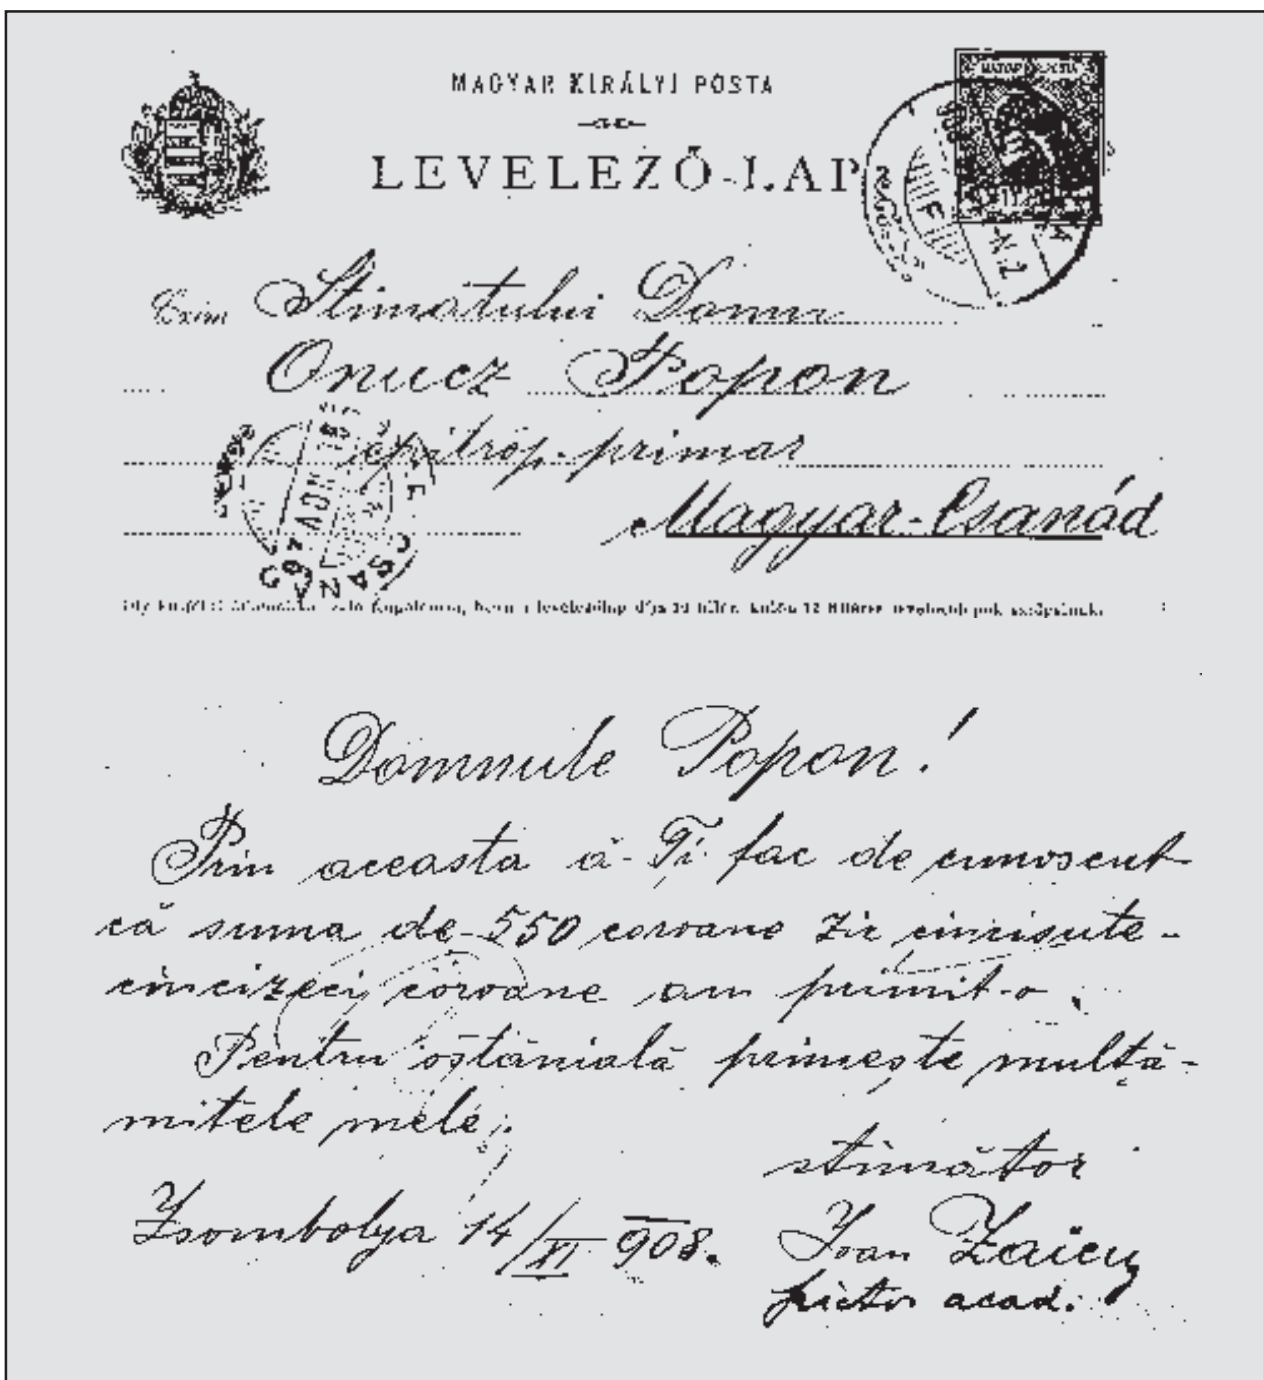 MAGYAR KIRÁLYI POSTA
LEVELEZŐ-LAP
MAGYAR POSTA
Czím Stimatului Domn
Onucz Popon
epitrop-primar
Magyar-Csanád
CSANÁD
Domnule Popon!
Prin aceasta ă-Ți fac de cunoscut
că suma de 550 coroane zic cincisute-
cincizeci coroane am primit-o.
Pentru osteniala primește mulță-
mitele mele.
stimător
Zsombolya 14/XI 908. Ioan Zaicu
pictor acad.